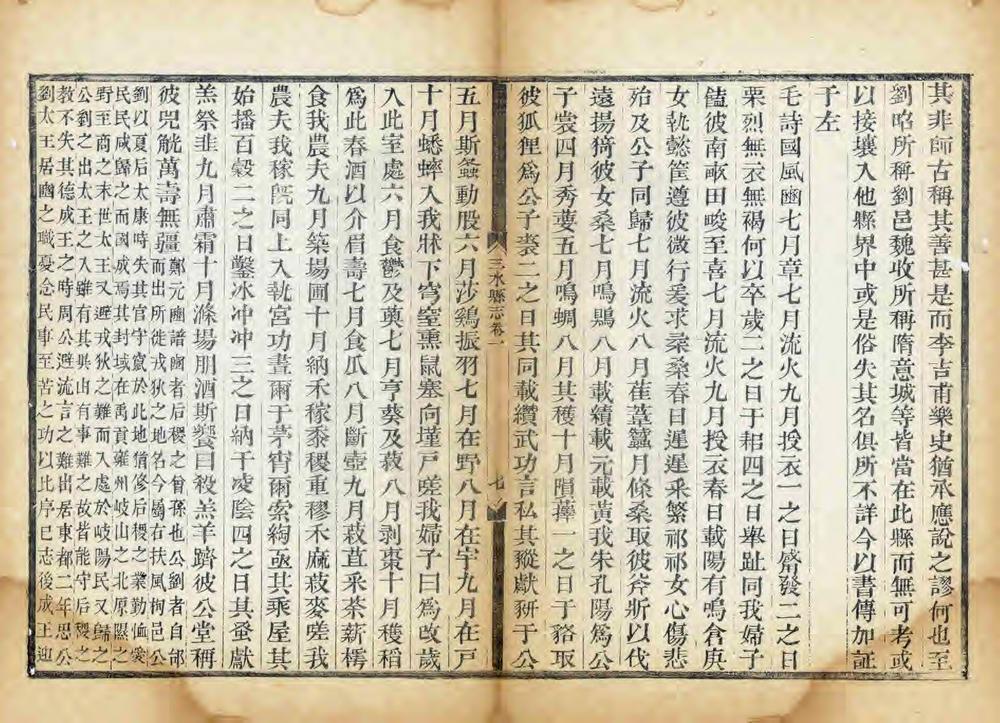 其非師古稱其善甚是而李吉甫樂史猶承應說之謬何也至
劉昭所稱劉邑魏收所稱隋意城等皆當在此縣而無可考或
以接壤入他縣界中或是俗失其名俱所不詳今以書傳加証
于左
毛詩國風豳七月章七月流火九月授衣一之日觱發二之日
栗烈無衣無褐何以卒歲二之日于耜四之日舉趾同我婦子
饁彼南畝田畯至喜七月流火九月授衣春日載陽有鳴倉庚
女執懿筐遵彼微行爰求柔桑春日遲遲采蘩祁祁女心傷悲
殆及公子同歸七月流火八月萑葦蠶月條桑取彼斧斨以伐
遠揚猗彼女桑七月鳴鵙八月載績載元載黃我朱孔陽爲公
子裳四月秀葽五月鳴蜩八月其穫十月隕蘀一之日于貉取
彼狐狸爲公子裘二之日其同載纘武功言私其豵獻豜于公
三水縣志卷一
七
五月斯螽動股六月莎鷄振羽七月在野八月在宇九月在戸
十月蟋蟀入我牀下穹窒熏鼠塞向墐戸嗟我婦子曰爲改歲
入此室處六月食鬱及薁七月亨葵及菽八月剥棗十月穫稻
爲此春酒以介眉壽七月食瓜八月斷壺九月菽苴采荼薪樗
食我農夫九月築場圃十月納禾稼黍稷重穋禾麻菽麥嗟我
農夫我稼旣同上入執宮功晝爾于茅宵爾索綯亟其乘屋其
始播百穀二之日鑿冰冲冲三之日納于凌陰四之日其蚤獻
羔祭韭九月肅霜十月滌場朋酒斯饗曰殺羔羊躋彼公堂稱
彼兕觥萬壽無疆鄭元豳譜豳者后稷之曾孫也公劉者自邰
而出所徙戎狄之地名今屬右扶風栒邑公
劉以夏后太康時失其官守竄於此地猶修后稷之業勤恤愛
民民咸歸之而國成焉其封域在禹貢雍州岐山之北原隰之
野至商之末世太王又避戎狄之難而入處於岐陽民又歸之
公劉之出太王之入雖有其異由有事難之故皆能守后稷之
教不失其德成王之時周公避流言之難出居東都二年思公
劉太王居豳之職憂念民事至苦之功以此序已志後成王迎